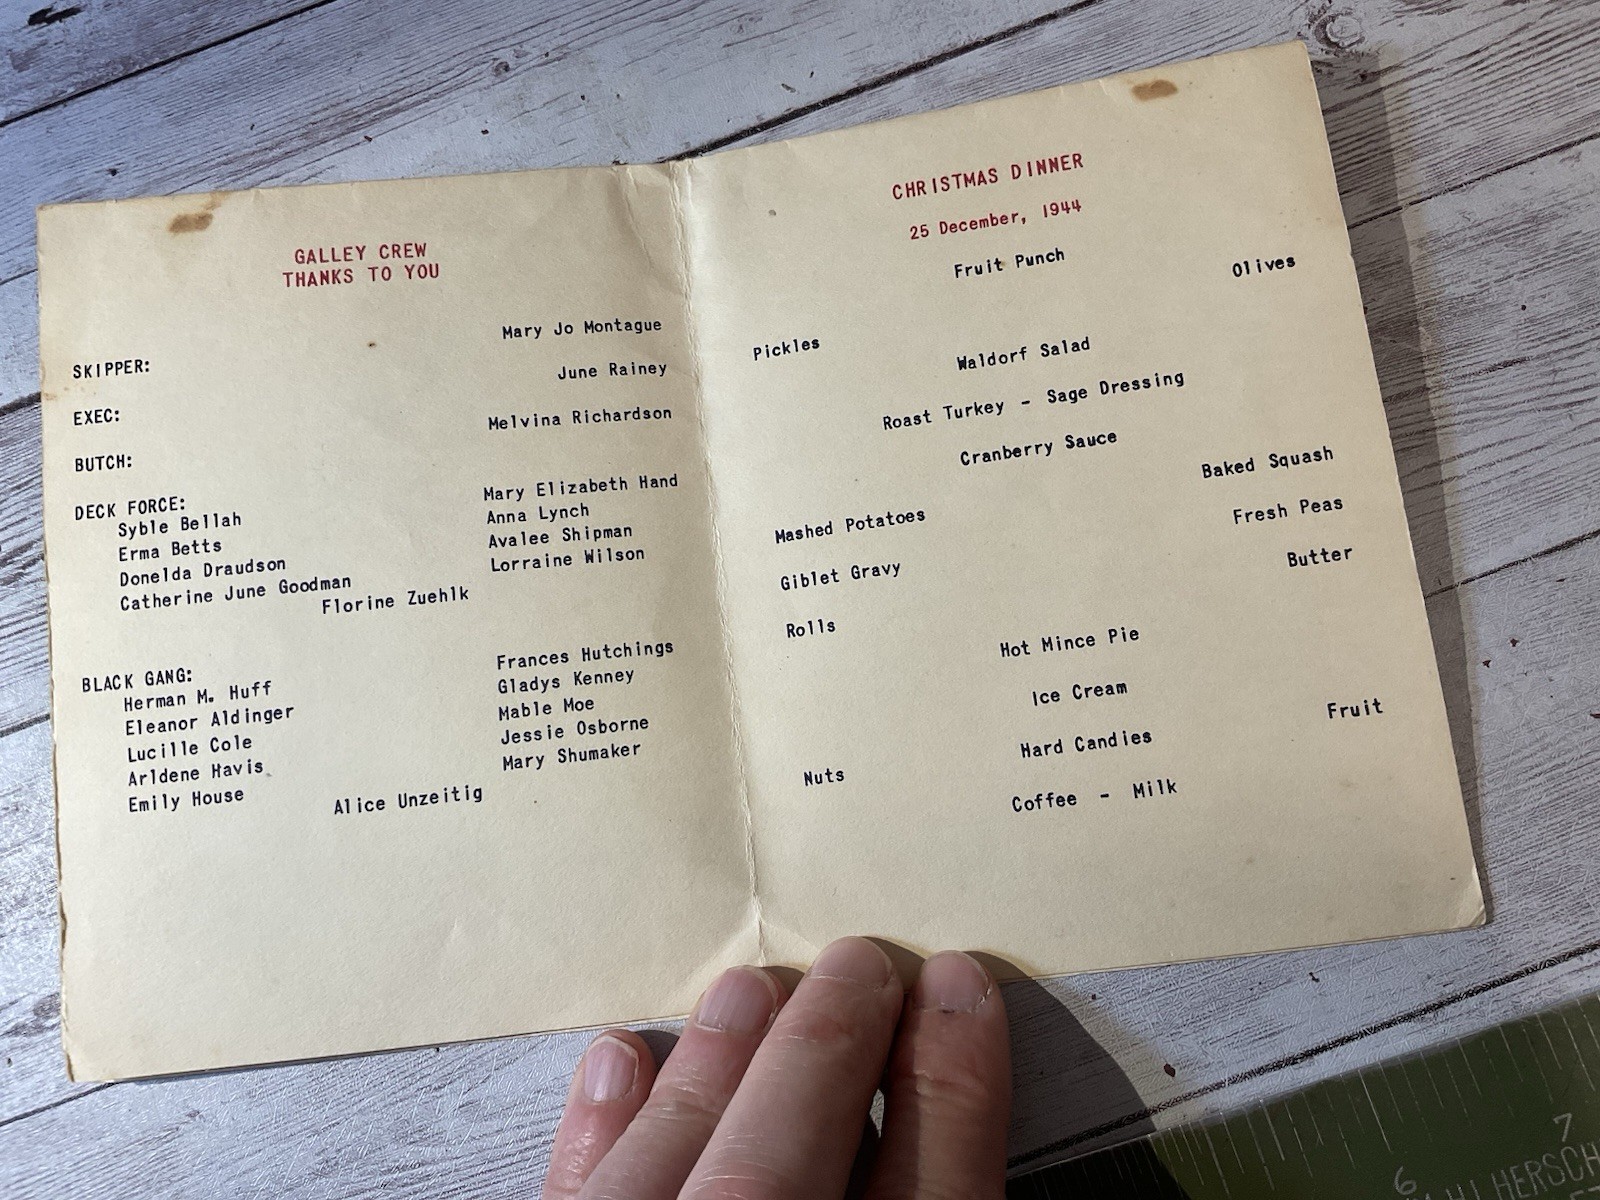 GALLEY CREW
THANKS TO YOU
SKIPPER: Mary Jo Montague
EXEC: June Rainey
BUTCH: Melvina Richardson
DECK FORCE:
Syble Bellah Mary Elizabeth Hand
Erma Betts Anna Lynch
Donelda Draudson Avalee Shipman
Catherine June Goodman Lorraine Wilson
Florine Zuehlk
BLACK GANG:
Herman M. Huff Frances Hutchings
Eleanor Aldinger Gladys Kenney
Lucille Cole Mable Moe
Arldene Havis Jessie Osborne
Emily House Mary Shumaker
Alice Unzeitig
CHRISTMAS DINNER
25 December, 1944
Fruit Punch
Pickles Olives
Waldorf Salad
Roast Turkey - Sage Dressing
Cranberry Sauce
Mashed Potatoes Baked Squash
Giblet Gravy Fresh Peas
Rolls Butter
Hot Mince Pie
Ice Cream
Hard Candies
Nuts Fruit
Coffee - Milk
6 7
HERSCH